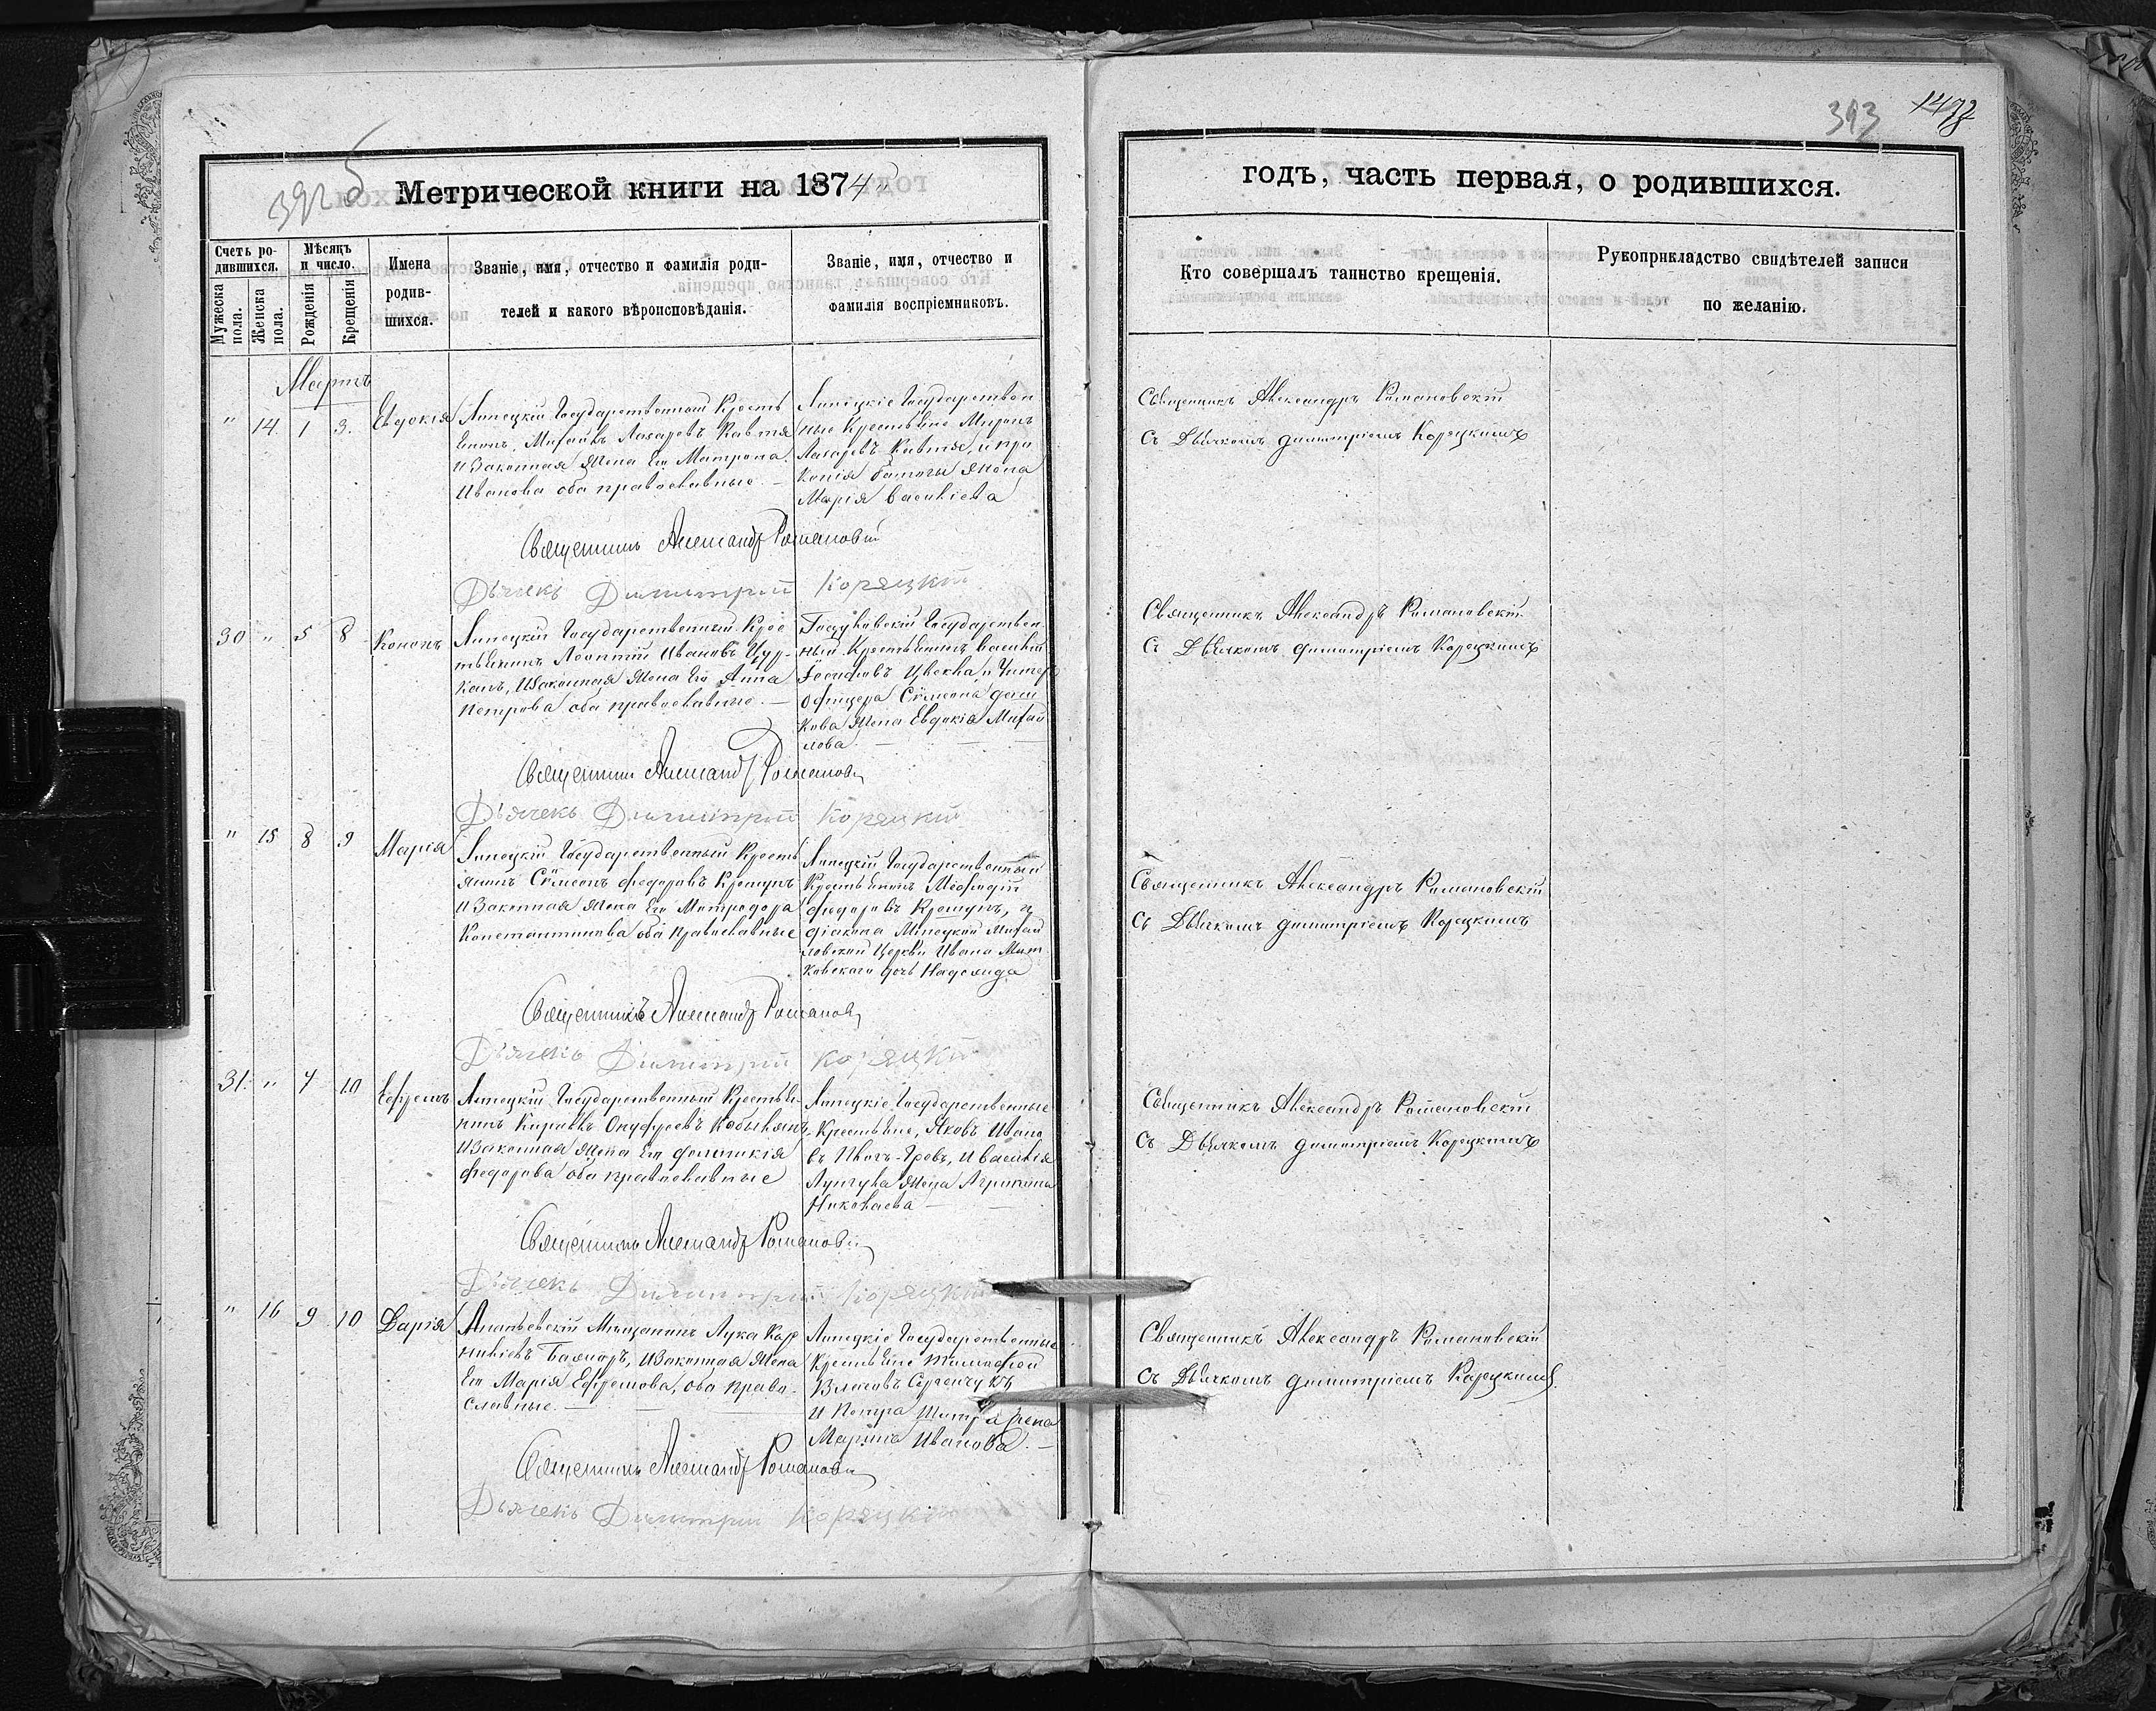 393
1472
392 б
Метрической книги на 1874
годъ, часть первая, о родившихся.
Счетъ ро-
дившихся.
Мужеска пола.
Женска пола.
Мѣсяцъ
и число.
Рожденія
Крещенія
Имена
родив-
шихся.
Званіе, имя, отчество и фамилія роди-
телей и какого вѣроисповѣданія.
Званіе, имя, отчество и
фамилія воспріемниковъ.
Кто совершалъ таинство крещенія.
Рукоприкладство свидѣтелей записи
по желанію.
Мартъ
" 14. 1 3. Евдокія
Липецкій Государственный Кресть
янинъ, Михаилъ Лазаревъ Кавтя
и Законная Жена Его Матрона
Иванова оба православные. —
Липецкіе Государствен
ные Крестьяне Миронъ
Лазаревъ Кавтя, и
Жена
Марія Василіева
Священникъ Александръ Романовскій
съ Дьячкомъ Димитріемъ Корецкимъ
Священникъ Александръ Романовскій
Дьячекъ Димитрій Корецкій
30 " 5 8 Кононъ
Липецкій Государственный Крес
тьянинъ Леонтій Ивановъ Цур-
канъ, и Законная Жена Его Анна
Петрова оба православные. —
Государствен-
ный Крестьянинъ Василій
Іосифовъ и Унтер
Офицера Сѵмеона
кова Жена Евдокія Михай
лова. —
Священникъ Александръ Романовскій
съ Дьячкомъ Димитріемъ Корецкимъ
Священникъ Александръ Романовскій
Дьячекъ Димитрій Корецкій
" 15 8 9 Марія
Липецкій Государственный Кресть
янинъ Сѵмеонъ Федоровъ Крецунъ
и Законная Жена Его Митродора
Константинова оба православные
Липецкій Государственный
Крестьянинъ Меѳодій
Федоровъ Крецунъ, и
діакона Липецкой Михай
ловской Церкви Ивана
ковскаго дочь Надежда
Священникъ Александръ Романовскій
съ Дьячкомъ Димитріемъ Корецкимъ
Священникъ Александръ Романовскій
Дьячекъ Димитрій Корецкій
31. " 7 10 Ефремъ
Липецкій Государственный Крестья-
нинъ Кириллъ Онуфріевъ Кобылянъ
и Законная Жена Его
Федорова оба православные
Липецкіе Государственные
Крестьяне, Яковъ Ивано
въ и Василія
Жена Агрипина
Николаева —
Священникъ Александръ Романовскій
съ Дьячкомъ Димитріемъ Корецкимъ
Священникъ Александръ Романовскій
Дьячекъ Димитрій Корецкій
" 16 9 10 Дарія
Ананьевскій Мѣщанинъ Лука Кор
ниліевъ Баянаръ, и Законная Жена
Его Марія Ефремова, оба право-
славные. —
Липецкіе Государственные
Крестьяне Тимофей
Власовъ
и Петра Жена
Марина Иванова. —
Священникъ Александръ Романовскій
съ Дьячкомъ Димитріемъ Корецкимъ.
Священникъ Александръ Романовскій
Дьячекъ Димитрій Корецкій